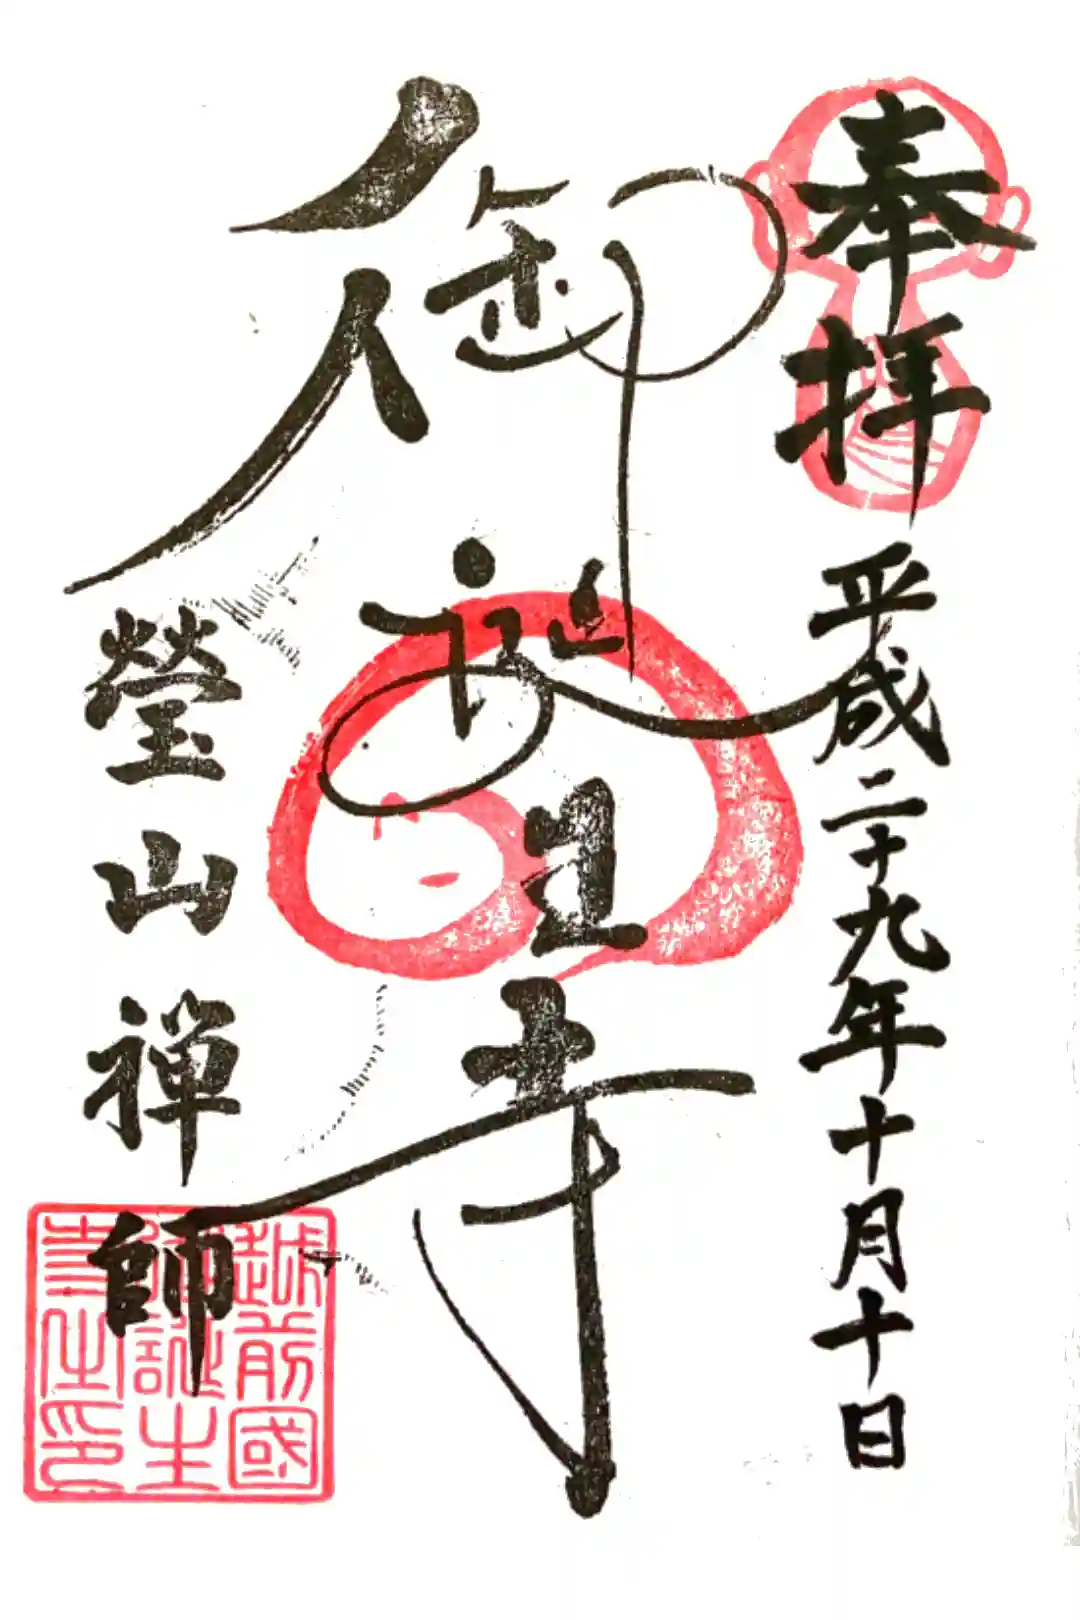 奉拝 平成二十九年十月十日
御誕生寺
瑩山禅師
越前國
御誕生
寺之印